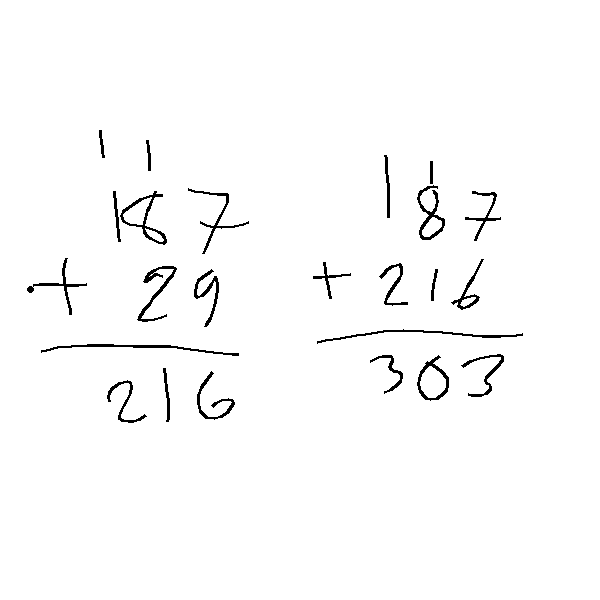 1 1
187
+ 29
216
1
187
+ 216
303